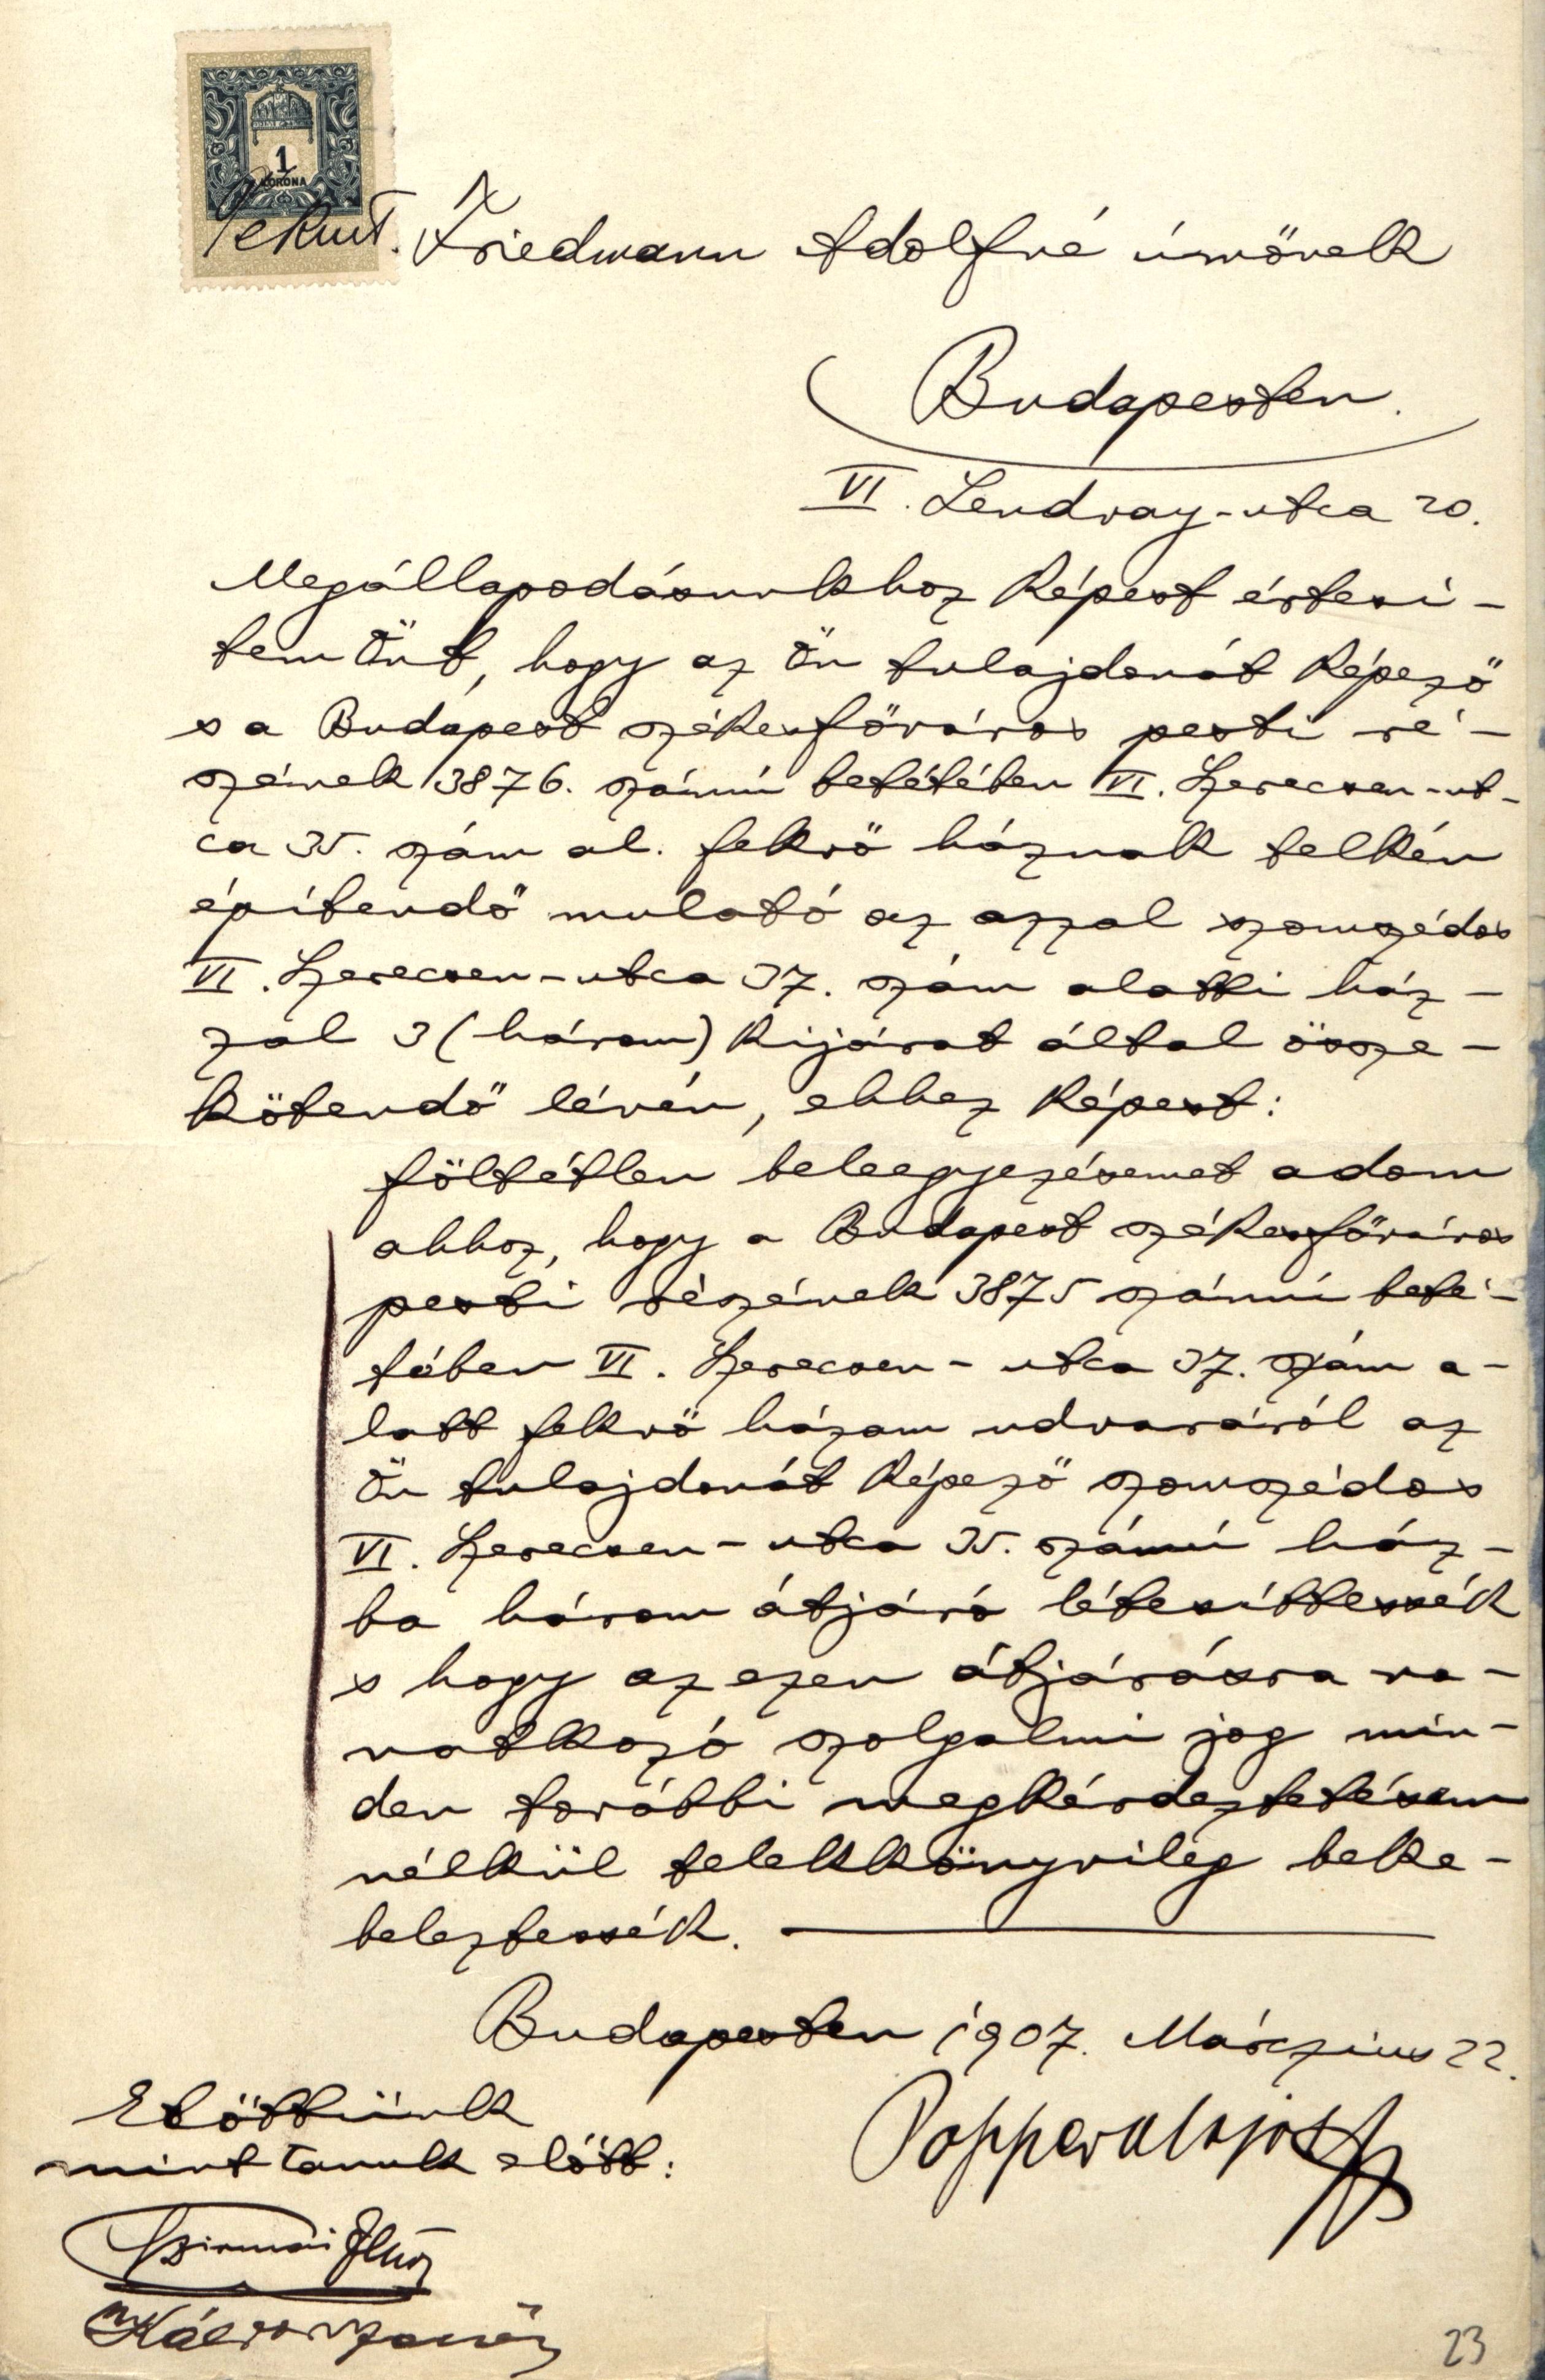 1
KORONA
Tekint. Friedmann Adolfné úrnőnek
Budapesten.
VI. Lendvay-utca 20.
Megállapodásunkhoz képest értesi-
tem Önt, hogy az Ön tulajdonát képező
s a Budapest székesfőváros pesti ré-
szének 3876. számú betétében VI. Szerecsen-ut-
ca 35. szám al. fekvő háznak telkén
építendő mulató az azzal szomszédos
VI. Szerecsen-utca 37. szám alatti ház-
zal 3 (három) kijárat által össze-
kötendő lévén, ehhez képest:
föltétlen beleegyezésemet adom
ahhoz, hogy a Budapest székesfőváros
pesti részének 3875 számú beté-
tében VI. Szerecsen-utca 37. szám a-
latt fekvő házam udvaráról az
Ön tulajdonát képező szomszédos
VI. Szerecsen-utca 35. számú ház-
ba három átjáró létesíttessék
s hogy az ezen átjárásra vo-
natkozó szolgalmi jog min-
den további megkérdeztetésem
nélkül telekkönyvileg beke-
beleztessék.
Budapesten 1907. Márczius 22.
Előttünk
mint tanuk előtt:
Popper Alajos
Szirmai
23